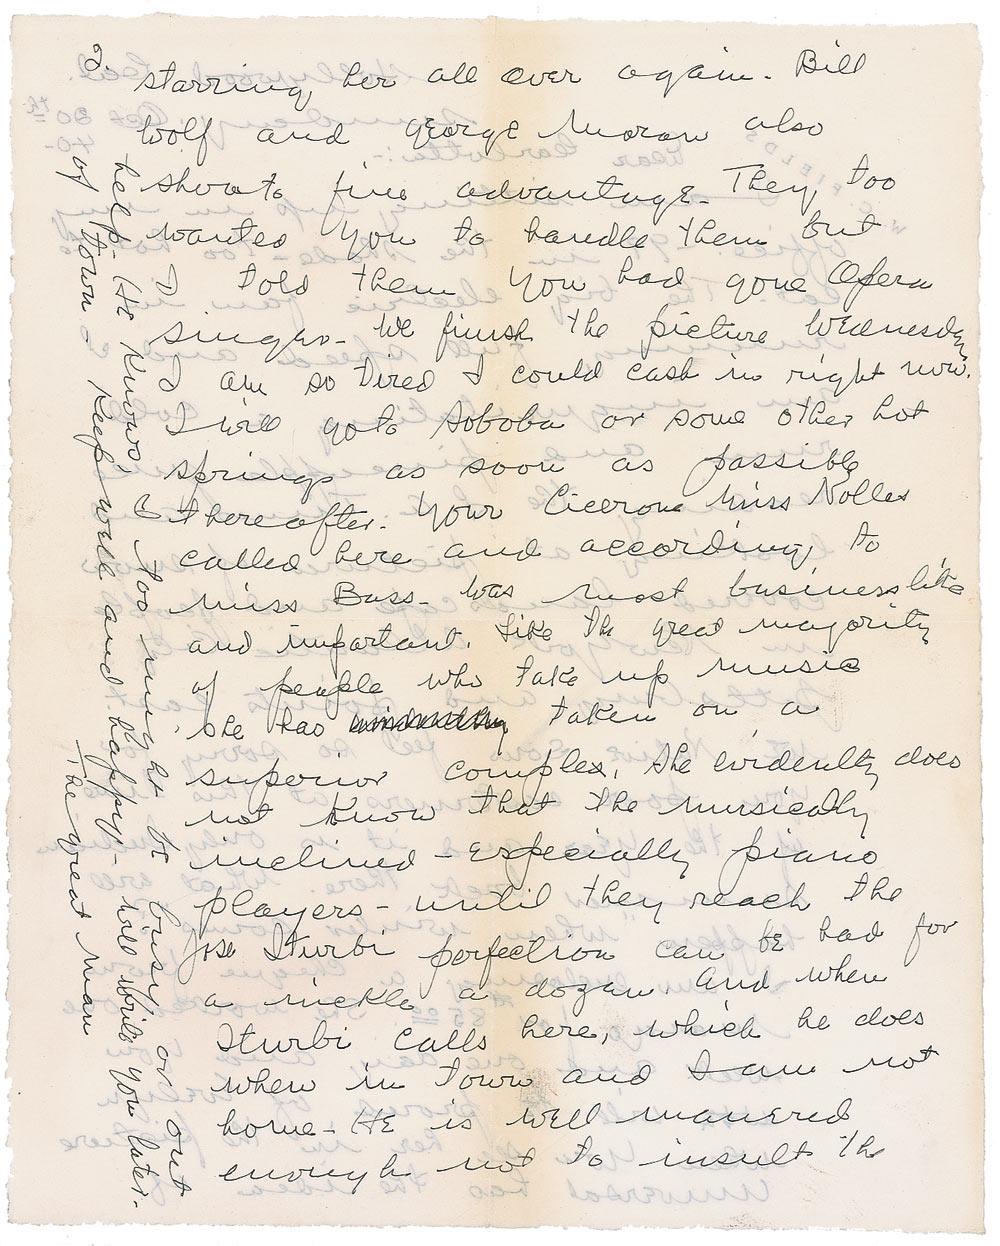 2.
starring her all over again. Bill
Wolf and George Moran also
show to fine advantage. They too
wanted you to handle them but
I told them you had gone Opera
singer. We finish the picture Wednesday.
I am so tired I could cash in right now.
I will go to Soboba or some other hot
springs as soon as possible
thereafter. Your Cicerone Miss Nolles
called here and according to
Miss Buss- was most businesslike
and important. Like the great majority
of people who take up music
she has taken on a
superior complex. She evidently does
not know that the musically
inclined - Especially piano
players - until they reach the
Jose Iturbi perfection can be had for
a nickle a dozen. And when
Iturbi calls here, which he does
when in town and I am not
home - He is well manered
enough not to insult the
help. He knows I too might be busy or out
of town. Keep well and happy - Will write you later.
The great man